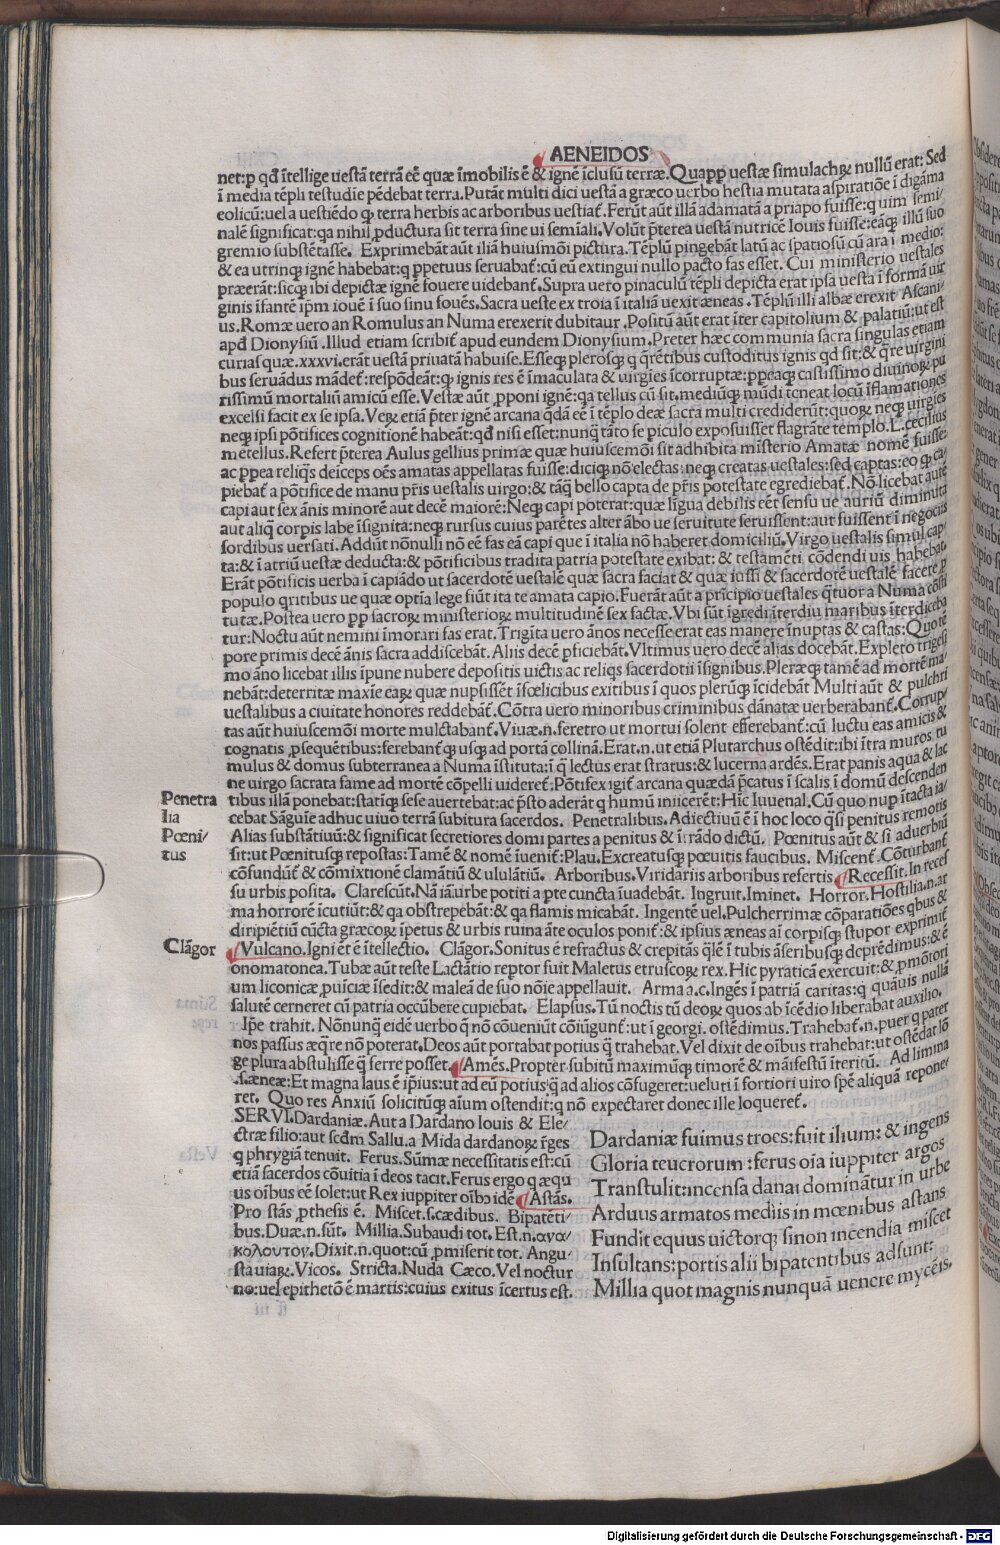 AENEIDOS
net:p qđ ītellige uestā terrā eē quæ īmobilis ē & ignē īclusū terræ. Quapp uestæ simulachꝝ nullū erat: Sed
ī media tēpli testudie pēdebat terra. Putāt multi dici uestā a græco uerbo hestia mutata aspiratiōe ī digāma
eolicū: uel a uestiēdo ꝙ terra herbis ac arboribus uestiať. Ferūt aūt illā adamatā a priapo fuisse: quim semi/
nalē significat: qa nihil ꝓductura sit terra sine ui semiali. Volūt p̄terea uestā nutricē Iouis fuisse: eaqꝫ illū suo
gremio substētasse. Exprimebāt aūt illiā huiusmōi pictura. Tēplū pingebāt latū ac spatiosū cū ara ī medio:
& ea utrinqꝫ ignē habebat: q ppetuus seruabať: cū eū extingui nullo pacto fas esset. Cui ministerio uestales
præerāt: sicqꝫ ibi depictæ ignē fouere uidebanť. Supra uero pinaculū tēpli depicta erat ipsa uesta ī formā uir
ginis īfantē ip̄m iouē ī suo sinu fouēs. Sacra ueste ex troia ī italiā uexit æneas. Tēplū illi albæ erexit Ascani/
us. Romæ uero an Romulus an Numa erexerit dubitatur. Positū aūt erat īter capitolium & palatiū: ut est
apđ Dionysiū. Illud etiam scribiť apud eundem Dionysium. Preter hæc communia sacra singulas etiam
curias quæ.xxxvi. erāt uestā priuatā habuise. Esseqꝫ plerosqꝫ q q̄rētibus custoditus ignis qđ sit: & q̄re uirgini
bus seruādus mādeť: respōdeāt: ꝙ ignis res ē īmaculata & uirgies īcorruptæ: ppeaqꝫ castissimo diuinoꝝ pu
rissimū mortaliū amicū esse. Vestæ aūt ꝓponi ignē: qa tellus cū sit, mediūqꝫ mūdi teneat locū īflamationes
excelsi facit ex se ipsa. Veꝝ etiā p̄ter ignē arcana q̄dā eē ī tēplo deæ sacra multi crediderūt: quoꝝ neqꝫ uirgies
neqꝫ ipsi pōtifices cognitionē habeāt: qđ nisi esset: nunq̄ tāto se piculo exposuisset flagrāte templo. L. cecilius
metellus. Refert p̄terea Aulus gellius primæ quæ huiuscemōi sit adhibita misterio Amatæ nomē fuisse:
ac ppea reliq̄s deiceps oēs amatas appellatas fuisse: diciqꝫ nō electas: neqꝫ creatas uestales: sed captas: eo ꝙ ca/
piebať a pōtifice de manu pr̄is uestalis uirgo: & tāq̄ bello capta de pris potestate egrediebať. Nō licebat autē
capi aut sex ānis minorē aut decē maiorē: Neqꝫ capi poterat: quæ līgua debilis eēt sensu ue auriū diminuta
aut aliq̄ corpis labe īsignita: neqꝫ rursus cuius parētes alter ābo ue seruitute seruissent: aut fuissent ī negociis
sordibus uersati. Addūt nōnulli nō eē fas eā capi que ī italia nō haberet domiciliū. Virgo uestalis simul cap/
ta: & ī atriū uestæ deducta: & pōtificibus tradita patria potestate exibat: & testamēti cōdendi uis habebat.
Erāt pōtificis uerba ī capiādo ut sacerdotē uestalē quæ sacra faciat & quæ iussi & sacerdotē uestalē facere p
populo qritibus ue quæ optīa lege fiūt ita te amata capio. Fuerāt aūt a prīcipio uestales q̄tuor a Numa cōsti
tutæ. Postea uero pp sacroꝝ ministerioꝝ multitudinē sex factæ. Vbi sūt īgredi īterdiu maribus īterdiceba
tur: Noctu aūt nemini īmorari fas erat. Trigīta uero ānos necesse erat eas manere īnuptas & castas: Quo tē
pore primis decē ānis sacra addiscebāt. Aliis decē pficiebāt. Vltimus uero decē alias docebāt. Expleto trigesi
mo āno licebat illis īpune nubere depositis uictis ac reliqs sacerdotii īsignibus. Pleræqꝫ tamē ad mortē ma/
nebāt: deterritæ maxie eaꝝ quæ nupsissēt īfœlicibus exitibus ī quos plerūqꝫ īcidebāt Multi aūt & pulchri
uestalibus a ciuitate honores reddebāť. Cōtra uero minoribus criminibus dānatæ uerberabanť. Corrup/
tas aūt huiuscemōi morte mulctabanť. Viuæ.n.feretro ut mortui solent efferebanť: cū luctu eas amicis &
cognatis ꝓsequētibus: ferebanťqꝫ usqꝫ ad portā collinā. Erat.n.ut etiā Plutarchus ostēdit: ibi ītra muros tu
mulus & domus subterranea a Numa īstituta: ī q̄ lectus erat stratus: & lucerna ardēs. Erat panis aqua & lac
ne uirgo sacrata fame ad mortē cōpelli uidereť. Pōtifex igiť arcana quædā p̄catus ī scalis ī domū descenden
tibus illā ponebat: statiqꝫ sese auertebat: ac p̄sto aderāt q humū iniicerēt: Hīc Iuuenal. Cū quo nup ītacta ia/
cebat Sāguīe adhuc uiuo terrā subitura sacerdos. Penetralibus. Adiectiuū ē ī hoc loco q̄si penitus remotis
Alias substātiuū: & significat secretiores domi partes a penitus & ītrādo dictū. Pœnitus aūt & si aduerbiū
sit: ut Pœnitusqꝫ repostas: Tamē & nomē iueniť: Plau. Excreatusqꝫ pœuitis faucibus. Miscenť. Cōturbanť
cōfundūť & cōmixtionē clamātiū & ululātiū. Arboribus. Viridariis arboribus refertis. Recessit. In reces
su urbis posita. Clarescūt. Nā ia uirbe potiti a pte cuncta īuadebāt. Ingruit. Iminet. Horror. Hostilia.n.ar
ma horrorē icutiūt: & qa obstrepebāt: & qa flamis micabāt. Ingentē uel. Pulcherrimæ cōparatiōes qbus &
diripiētiū cūcta græcoꝝ īpetus & urbis ruina āte oculos poniť: & ipsius æneas ai corpisqꝫ stupor exprimiť
Vulcano. Igni ēt ē ītellectio. Clāgor. Sonitus ē refractus & crepitās q̄lē ī tubis āseribusqꝫ depredimus: & ē
onomatonea. Tubæ aūt teste Lactātio reptor fuit Maletus etruscoꝝ rex. Hic pyraticā exercuit: & ꝓmōtori
um liconicæ, puiciæ īsedit: & maleā de suo nōie appellauit. Arma a.c. Ingēs ī patriā caritas: q quāuis nullā
salutē cerneret cū patria occūbere cupiebat. Elapsus. Tū noctis tū deoꝝ quos ab īcēdio liberabat auxilio.
Ip̄e trahit. Nōnunq̄ eidē uerbo q̄ nō coueniūt cōiūgunť: ut ī georgi. ostēdimus. Trahebať.n.puer q pater
nos passus æq̄re nō poterat. Deos aūt portabat potius q̄ trahebat. Vel dixit de oībus trahebat: ut ostēdat lō
ge plura abstulisse q̄ serre posset. Amēs. Propter subitū maximūqꝫ timorē & māifestū īteritū. Ad limina
.s.æneæ: Et magna laus ē ip̄ius: ut ad eū potius q̄ ad alios cōfugeret: ueluti ī fortiori uiro spē aliquā repone/
ret. Quo res Anxiū solicitūqꝫ aīum ostendit: q nō expectaret donec ille loquereť.
Penetra
lia
Pœni/
tus
Clāgor
SERVI. Dardaniæ. Aut a Dardano Iouis & Ele/
ctræ filio: aut scđm Sallu. a Mida dardanoꝝ r̄ges
q phrygiā tenuit. Ferus. Sūmæ necessitatis est: cū
etiā sacerdos cōuitia ī deos tacit. Ferus ergo q æqu
us oībus eē solet: ut Rex iuppiter oībꝰ idē. Astās.
Pro stās ꝓthesis ē. Miscet. s. cædibus. Bipatēti/
bus. Duæ.n.sūt. Millia. Subaudi tot. Est.n.ανα/
κολουτον. Dixit.n.quot: cū ꝓmiserit tot. Angu/
sta uiaꝝ. Vicos. Stricta. Nuda Cæco. Vel noctur
no: uel epithetō ē martis: cuius exitus īcertus est.
Dardaniæ fuimus troes: fuit ilium: & ingens
Gloria teucrorum: ferus oīa iuppiter argos
Transtulit: incensa danai dominātur in urbe
Arduus armatos mediis in mœnibus astans
Fundit equus uictorqꝫ sinon incendia miscet
Insultans: portis alii bipatentibus adsunt:
Millia quot magnis nunquā uenere mycēis.
Digitalisierung gefördert durch die Deutsche Forschungsgemeinschaft - DFG